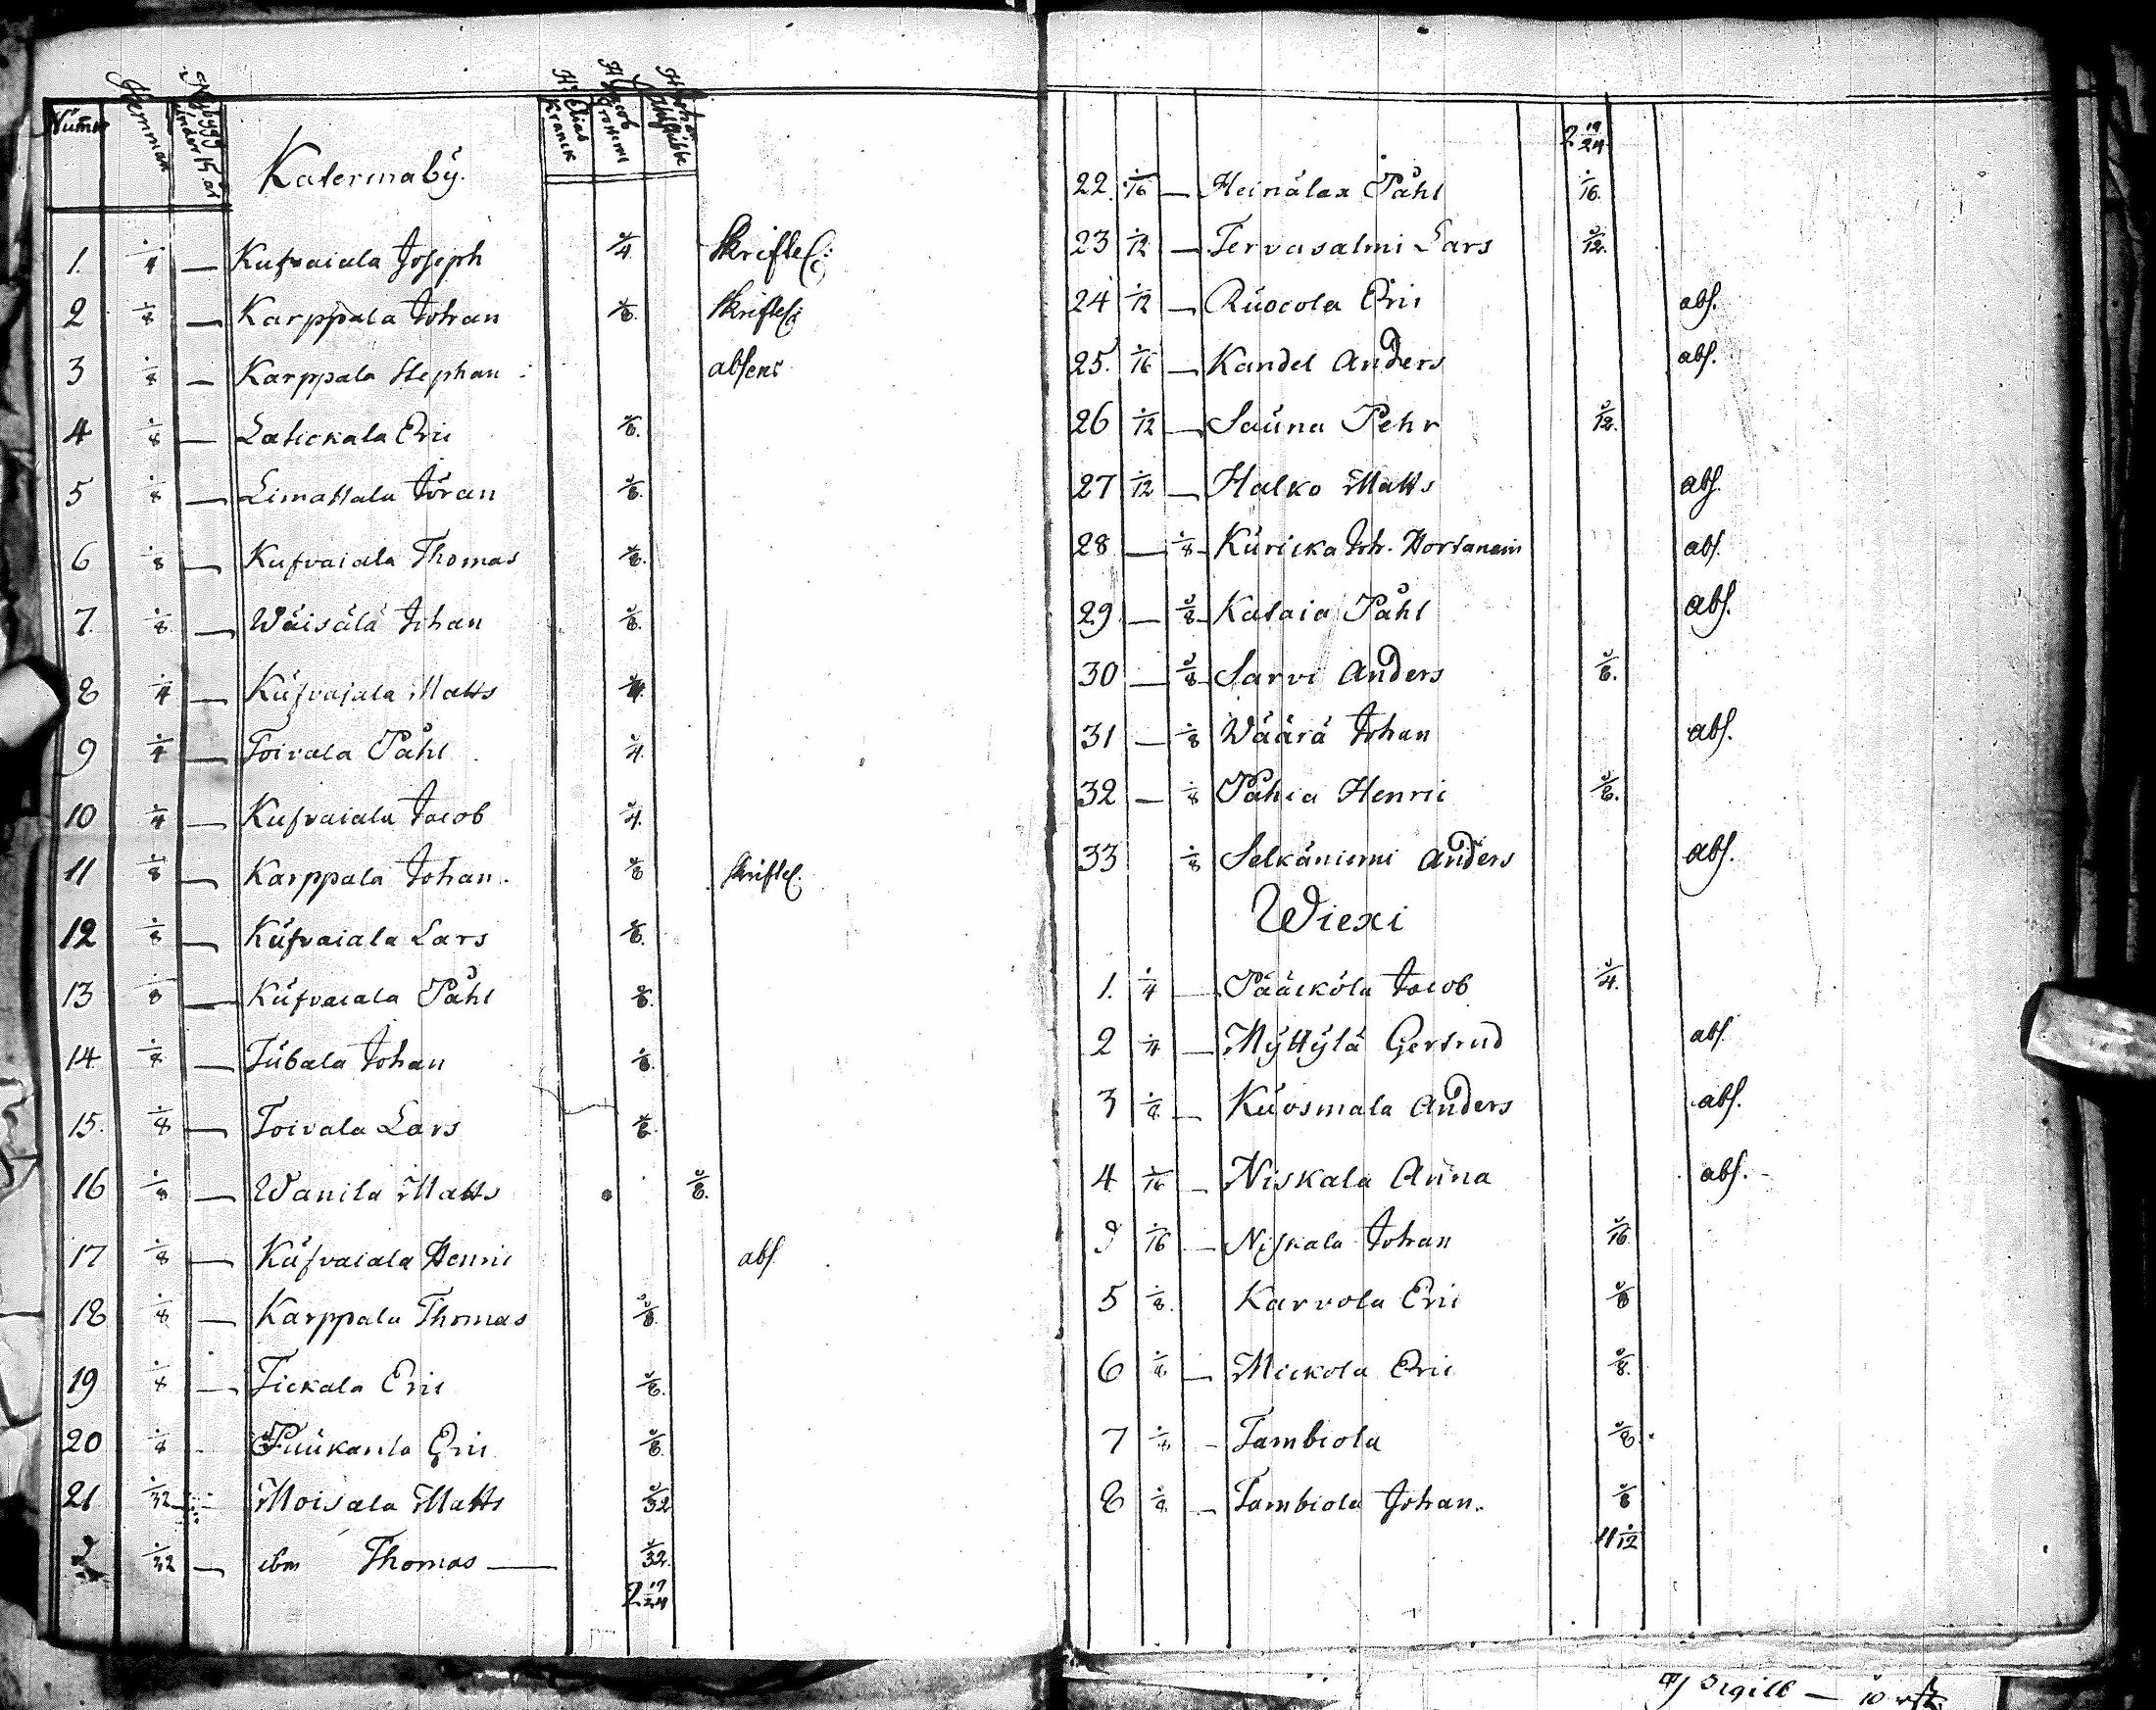 Numr Hemman Nybygg under 15 år Katermaby. Hr Elias Kranck Hr Jacob
1. 1/4 — Kufvaiala Joseph 1/4 Skriftel:
2 1/8 — Karppala Johan 1/8. Skriftel:
3 1/8 — Karppala Stephan absens
4 1/8 — Latickala Eric 1/8.
5 1/8 — Limattala Jöran 1/8.
6 1/8 — Kufvaiala Thomas 1/8.
7. 1/8 — Wäisälä Johan 1/8.
8 1/4 — Kufvajala Matts 1/4.
9 1/4 — Toivala Påhl 1/4.
10 1/4 — Kufvaiala Jacob 1/4.
11 1/8 — Karppala Johan. 1/8 skriftel.
12 1/8 — Kufvaiala Lars 1/8.
13 1/8 — Kufvaiala Påhl 1/8.
14. 1/8 — Tubala Johan 1/8.
15. 1/8 — Toivala Lars 1/8.
16 1/8 — Wanila Matts 1/8.
17 1/8 — Kufvaiala Henric abs.
18 1/8 — Karppala Thomas 1/8.
19 1/8 — Tickala Eric 1/8.
20 1/8 - Puukanla Eric 1/8.
21 1/32 — Moisala Matts 1/32
1/32 — ibm Thomas — 1/32.
2 19/24
2 19/24
22. 1/16 — Heinälax Påhl 1/16.
23 1/12 — Tervasalmi Lars 1/12.
24 1/12 — Ruocola Eric abs.
25. 1/16 — Kandel Anders abs.
26 1/12 — Sauna Pehr 1/12.
27 1/12 — Halko Matts abs.
28 — 1/8 Kuricka Joh. Hortanain abs.
29 — 1/8 Kataia Påhl abs.
30 — 1/8 Sarvi Anders 1/8.
31 — 1/8 Wäärä Johan abs.
32 — 1/8 Påhia Henric 1/8.
33 1/8 Selkäniemi Anders abs.
Wiexi
1. 1/4 — Pääckölä Jacob 1/4.
2 1/4 — Myttylä Gertrud abs.
3 1/8 — Kuosmala Anders abs.
4 1/16 — Niskala Anna abs. -
1/16 — Niskala Johan 1/16
5 1/8. Karvola Eric 1/8
6 1/8 — Mickola Eric 1/8.
7 1/8 - Tambiola 1/8.
8 1/8 — Tambiola Johan. 1/8
— 10